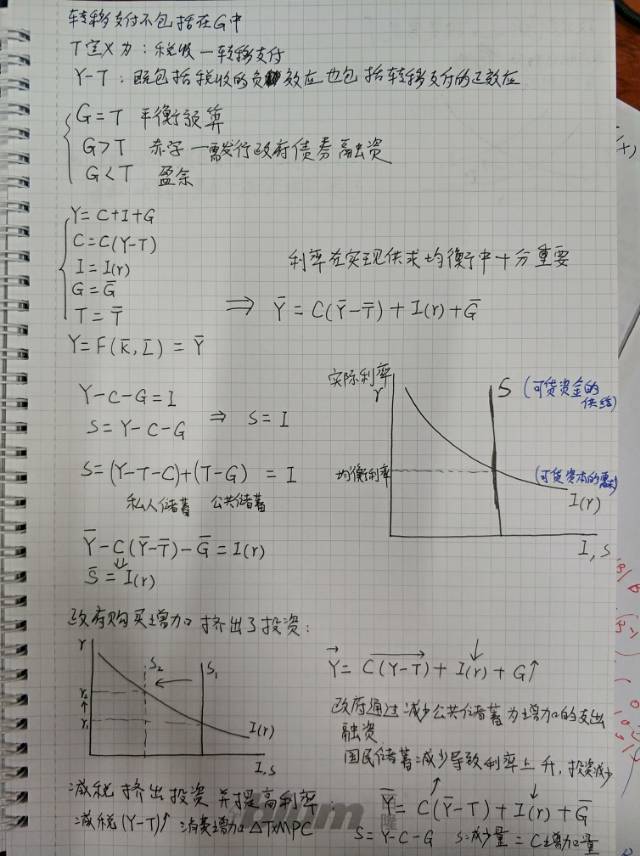 转移支付不包括在G中
T定义为：税收－转移支付
Y-T：既包括税收的负效应也包括转移支付的正效应
G=T 平衡预算
G>T 赤字－需发行政府债券融资
G<T 盈余
Y=C+I+G
C=C(Y-T)
I=I(r)
G=Ḡ
T=T̄
Y=F(K̄,L̄)=Ȳ
利率在实现供求均衡中十分重要
⇒ Ȳ=C(Ȳ-T̄)+I(r)+Ḡ
Y-C-G=I
S=Y-C-G ⇒ S=I
S=(Y-T-C)+(T-G)=I
私人储蓄 公共储蓄
Ȳ-C(Ȳ-T̄)-Ḡ=I(r)
↓
S̄=I(r)
实际利率
r
S (可贷资金的
供给)
均衡利率
(可贷资本的需求)
I(r)
I,S
政府购买增加挤出了投资：
r
S₂
←
S₁
r₂
↑
r₁
I(r)
I,S
→ ↓
Y=C(Y-T)+I(r)+G↑
政府通过减少公共储蓄为增加的支出
融资
国民储蓄减少导致利率上升，投资减少
减税挤出投资并提高利率：
减税(Y-T)↑ 消费增加△T×MPC
↑ ↓
Ȳ=C(Ȳ-T)+I(r)+Ḡ
S=Y-C-G S减少量=C增加量